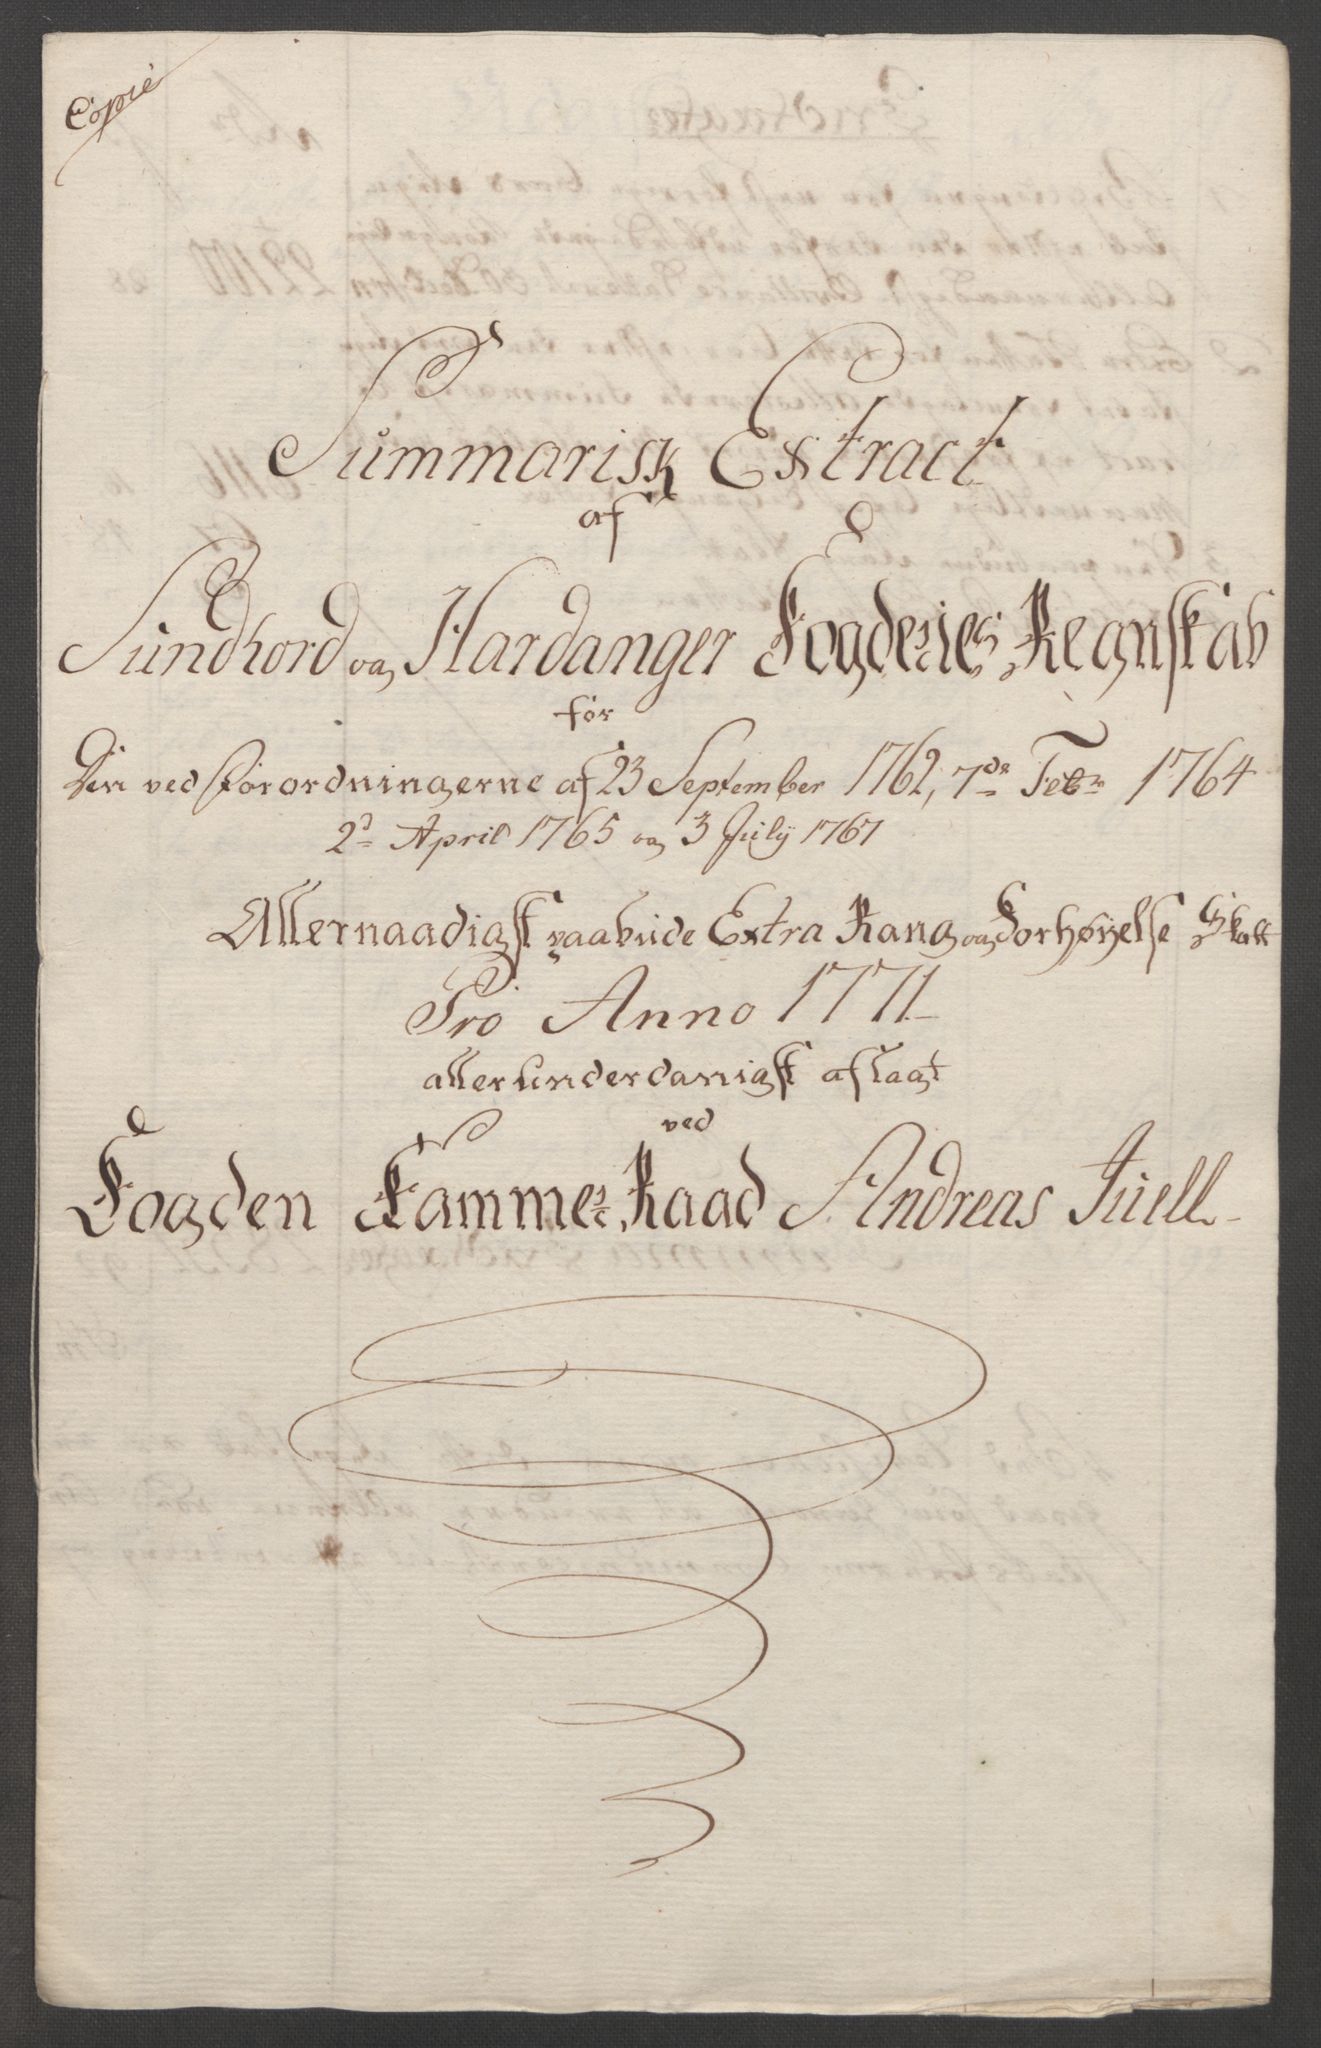 Copie
Summarisk Extract
af
Sundhord og Hardanger Fogderies Regnskab
for
Den ved Forordningerne af 23 September 1762, 7de Febr 1764
2d April 1765 og 3 Julÿ 1767
Allernaadigst paabude Extra Rang og Forhøyelse Skatt
Pro Anno 1771
allerunderdanigst aflagt
ved
Fogden Kammer Raad Andreas Juell